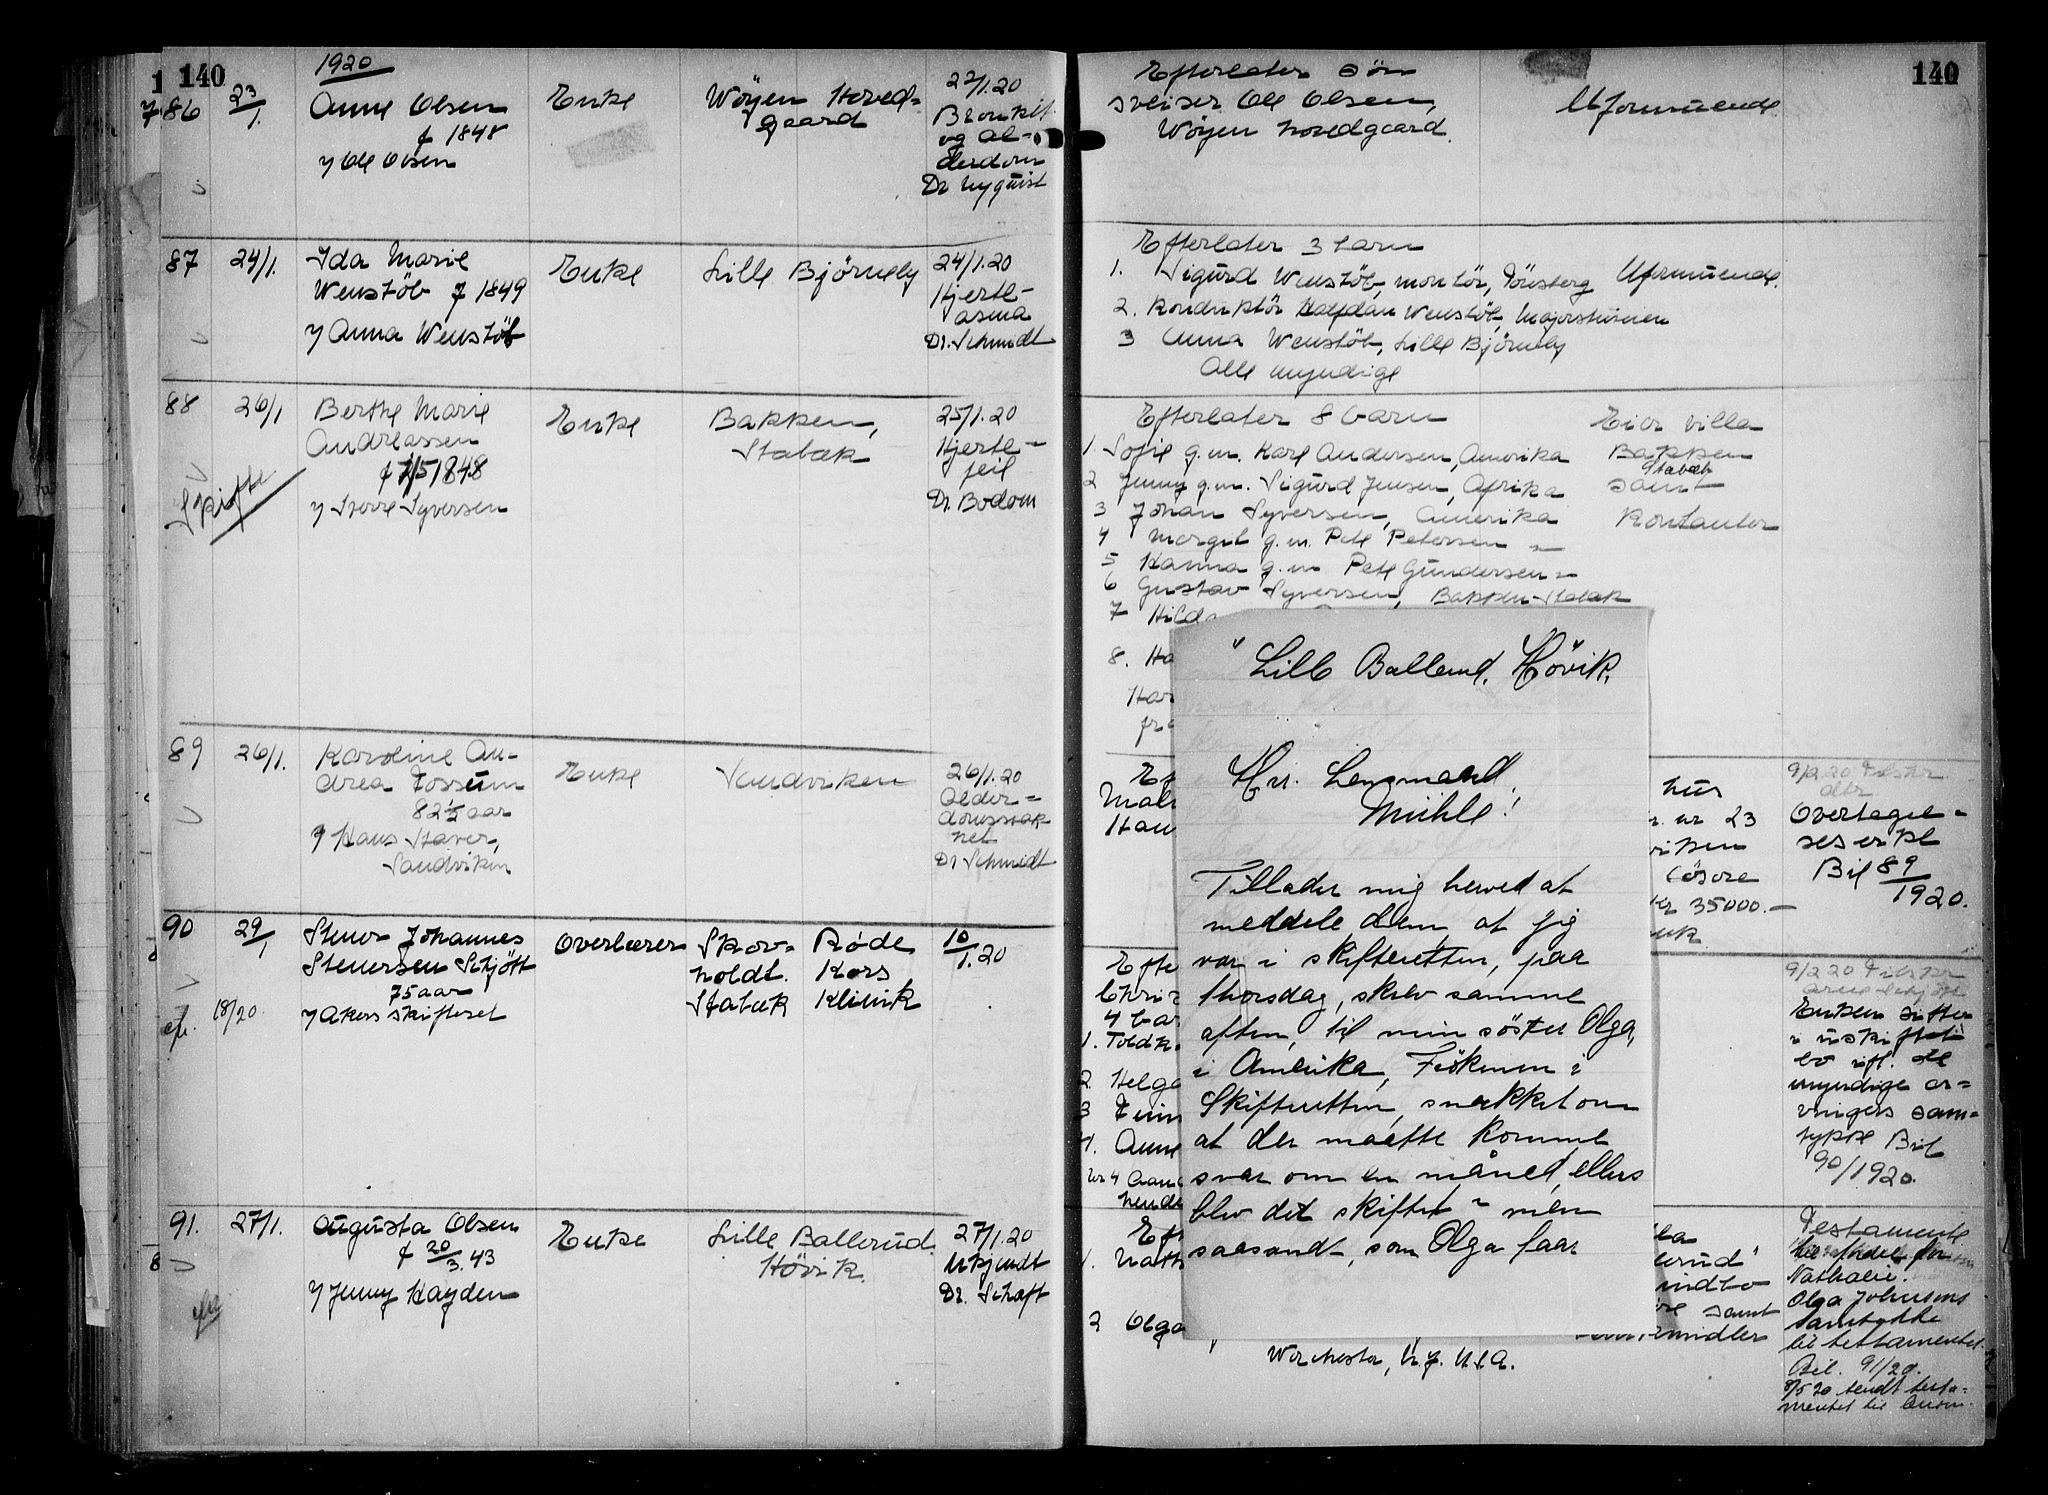 140
1920
86 23/1. Anne Olsen
f 1848
Enke
Wøyen Hoved=
gaard
22/1.20
Bronkit
og al-
derdom
Dr Nyquist
Efterlater søn
sveiser Ole Olsen,
Wøyen hovedgaard.
Uformuende
140
87 24/1. Ida Marie
Wenstöb f 1849
y Anna Wenstöb
Enke
Lille Björneby
24/1.20
Hjerte-
asma
Dr. Schmidt
Efterlater 3 barn
1. Sigurd Wenstöb, montör, Tönsberg
2. Konduktör Halfdan Wenstöb, Majorstuveien
3 Anna Wenstöb, Lille Björneby
Alle myndige
Uformuende.
88 26/1 Berthe Marie
Andreassen
f 1/5 1848
Skifte
y Syversen
Enke
Bakken,
Stabæk
25/1.20
Hjerte-
feil
Dr. Bodom
Efterlater 8 barn
1 Sofie g.m. Karl Andersen, Amerika
2 Jenny g.m. Sigurd Jensen, Afrika
3 Johan Syversen, Amerika
4 Margit g.m. Pete Petersen "
5 Hanna g.m. Pete Gundersen "
6 Gustav Syversen, Bakken-Stabæk
7 Hild
8. Ha
Har
fr
Eier villa
Bakken
Stabæk
samt
kontanter
89 26/1. Karoline An-
drea Fossum
82 1/2 aar
y Hans Haver,
Sandviken
Enke
Sandviken
26/1.20
Alder=
domssvak
het
Dr Schmidt
hus
nr 23
viken
løsøre
kr 35000.—
Overtagel=
ses erkl
Bil 89/1920.
90 29/1 Stener Johannes
Stenersen Schjött
75 aar
y Akers skifteret
18/20
Overlærer
Skov=
holdt.
Stabæk
Røde
Kors
Klinik
10/1.20
Efte
Chri
4 bar
1. Toldk.
2 Helga
3 Finn
4. Anne
Enken sitter
i uskiftet
bo ifl. de
myndige ar=
vingers sam=
tykke Bil
90/1920.
91. 27/1. Augusta Olsen
f 20/3.43
y Jenny Hayden
Enke
Lille Ballerud.
Hövik.
27/1.20
Ukjendt
Dr. Schaft
1. Nath
2 Olga
Worchester, N.J. U.S.A.
erud"
indbo
samt
midler
Testamente
Nathalie.
Olga Johnsons
samtykke
til testamentet.
Bil. 91/20.
8/5 20 sendt testa=
mentet til
"Lille Ballerud. Hövik.
Hr. Lensmand,
Mühle!
Tillader mig herved at
meddele dem, at jeg
var i skifteretten, paa
thorsdag, skrev samme
aften, til min söster Olga,
i Amerika, Fröknen i
Skifteretten, snakket om
at der maatte komme
svar om en måned, ellers
blev det skiftet - men
saasandt, som Olga faar